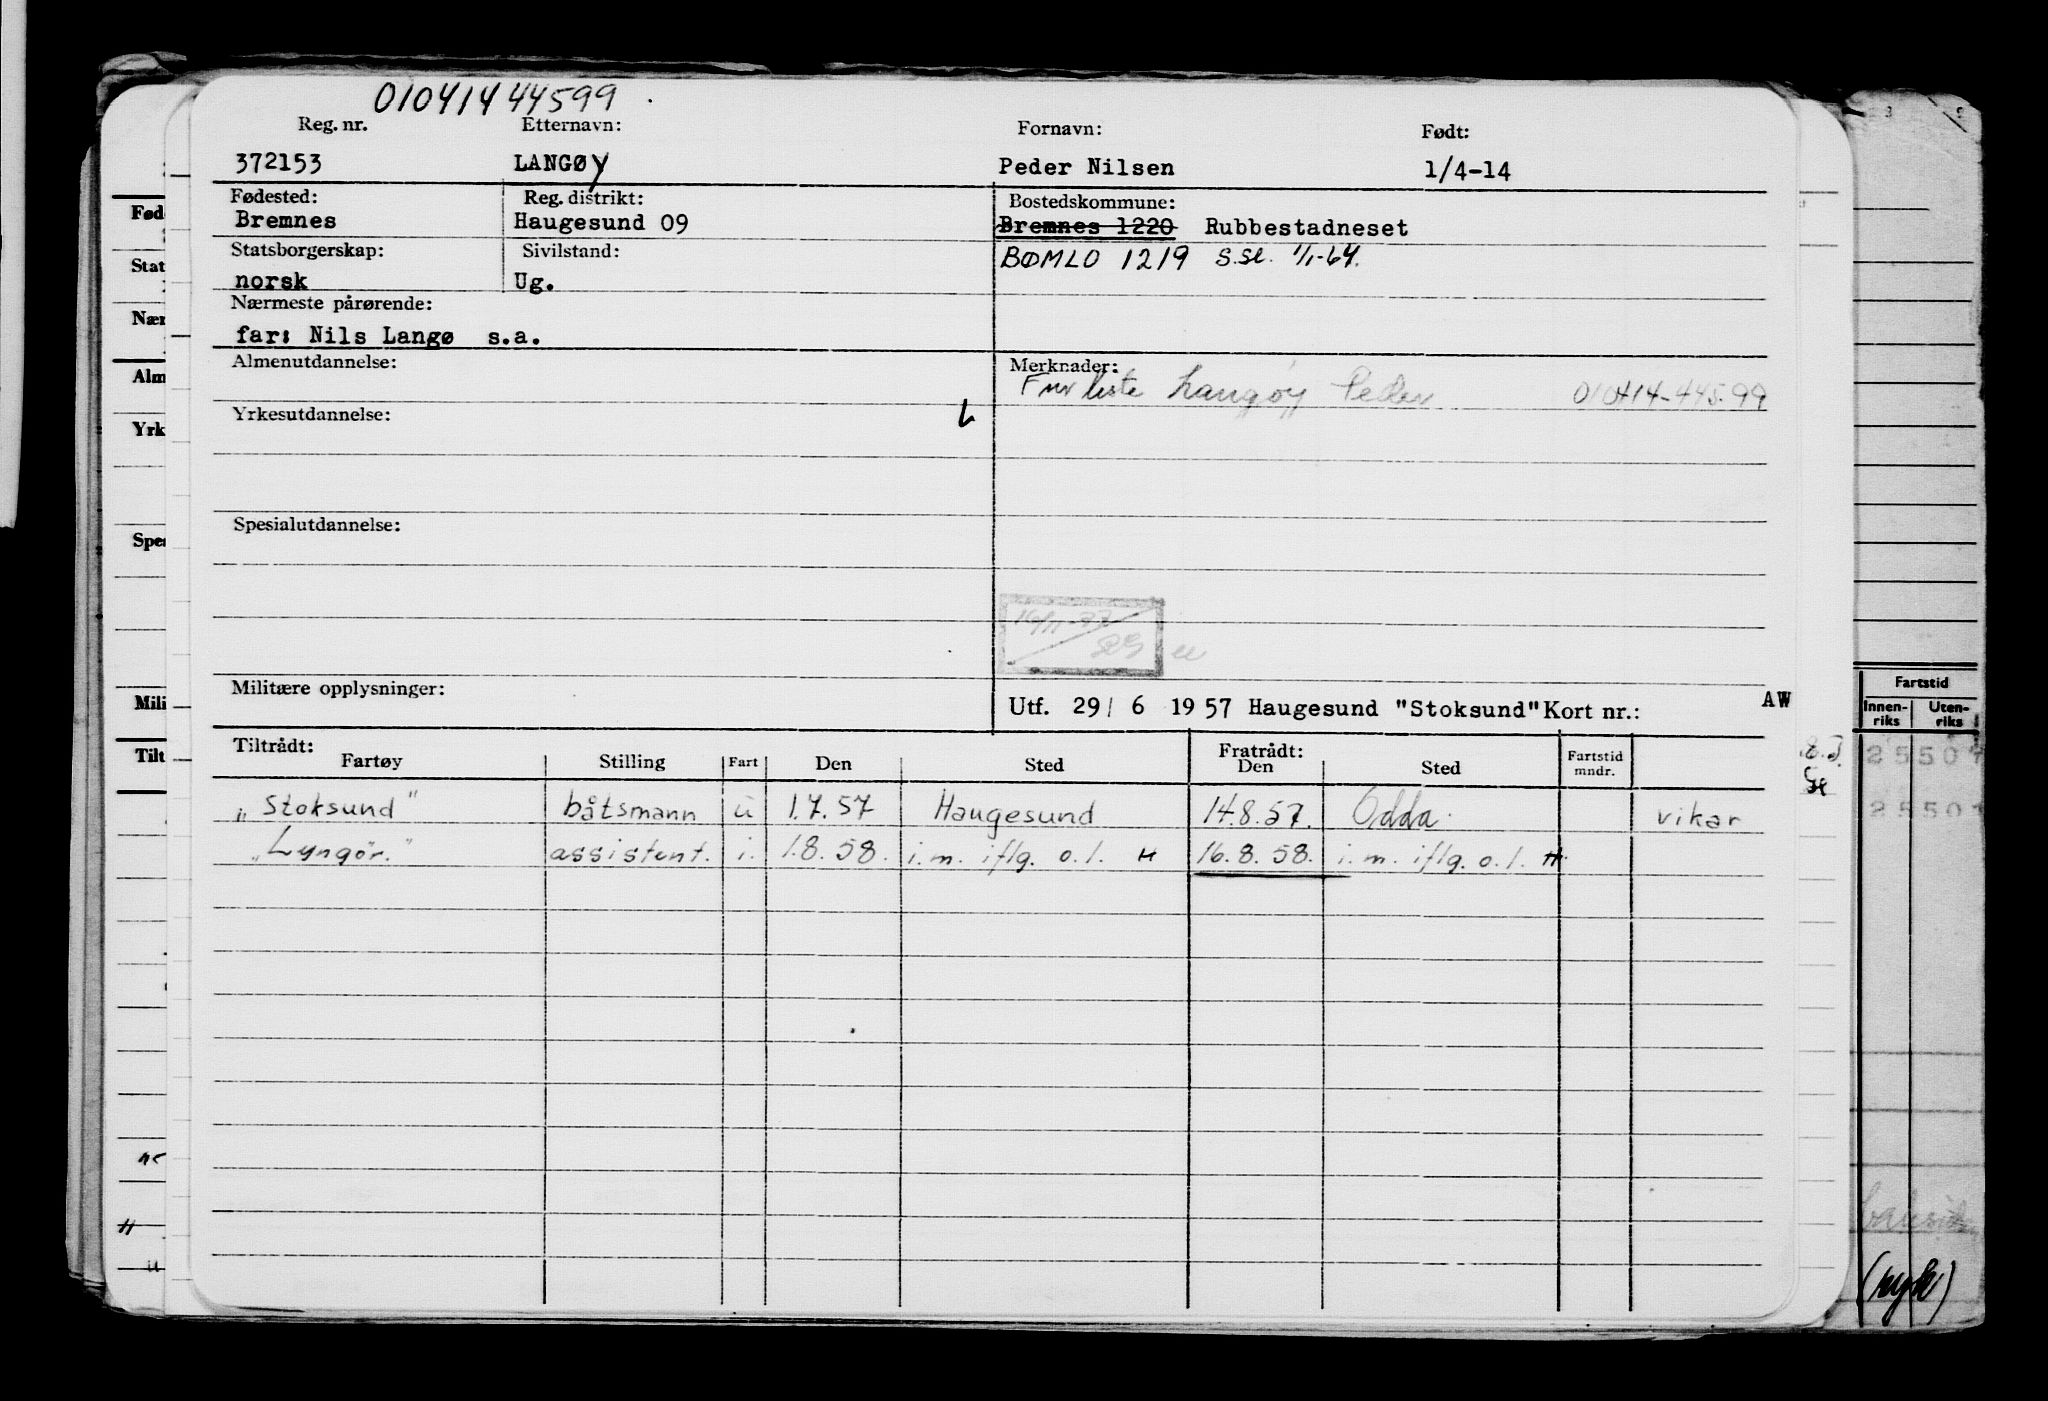 010414 44599
Reg. nr. Etternavn: Fornavn: Født:
372153 LANGØY Peder Nilsen 1/4-14
Fødested: Reg. distrikt: Bostedskommune:
Bremnes Haugesund 09 Bremnes 1220 Rubbestadneset
Statsborgerskap: Sivilstand: BØMLO 1219 S.se. 1/1-64.
norsk Ug.
Nærmeste pårørende:
far: Nils Langø s.a.
Almenutdannelse: Merknader:
Fnr liste Langøy Peder 010414-44599
Yrkesutdannelse:
Spesialutdannelse:
Militære opplysninger:
Utf. 29/ 6 1957 Haugesund "Stoksund" Kort nr.: AW
Tiltrådt: Fratrådt:
Fartøy Stilling Fart Den Sted Den Sted Fartstid mndr.
„Stoksund" båtsmann u 1.7.57 Haugesund 14.8.57. Odda vikar
„Lyngör." assistent. i. 1.8.58. i.m. iflg. o.l. H 16.8.58. i.m. iflg. o.l. H
Fød
Stat
Nær
Alm
Yrk
Spe
Mili
Tilt
Fartstid
Innen-riks Uten-riks
25507
2550